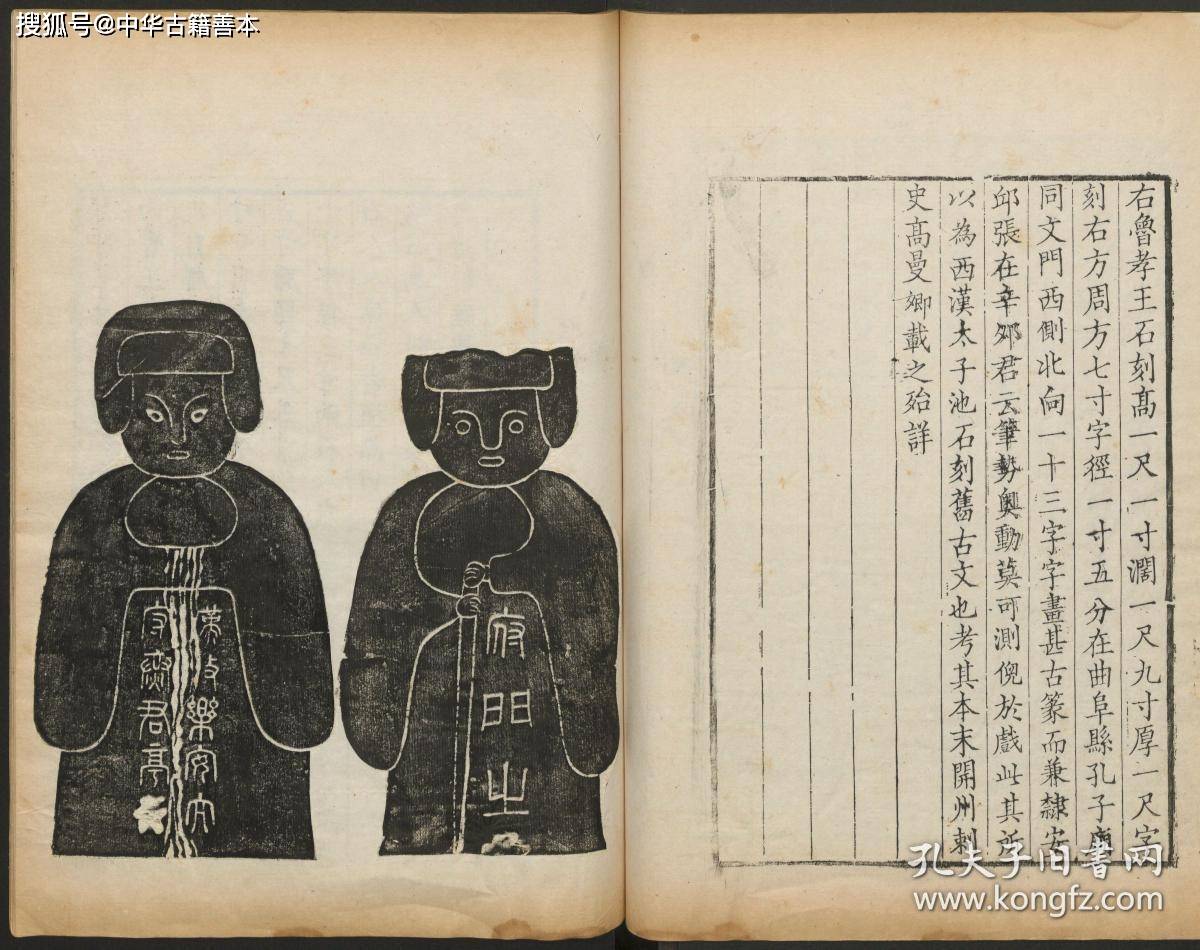 搜狐号@中华古籍善本
右魯孝王石刻髙一尺一寸濶一尺九寸厚一尺字
刻右方周方七寸字徑一寸五分在曲阜縣孔子廟
同文門西側北向一十三字字畫甚古篆而兼隸安
邱張在辛郊君云筆勢奥動莫可測倪於戲此其所
以為西漢太子池石刻舊古文也考其本末開州刺
史髙曼卿載之殆詳
府門之
漢故樂安太
守麃君亭
孔夫子旧书网
www.kongfz.com